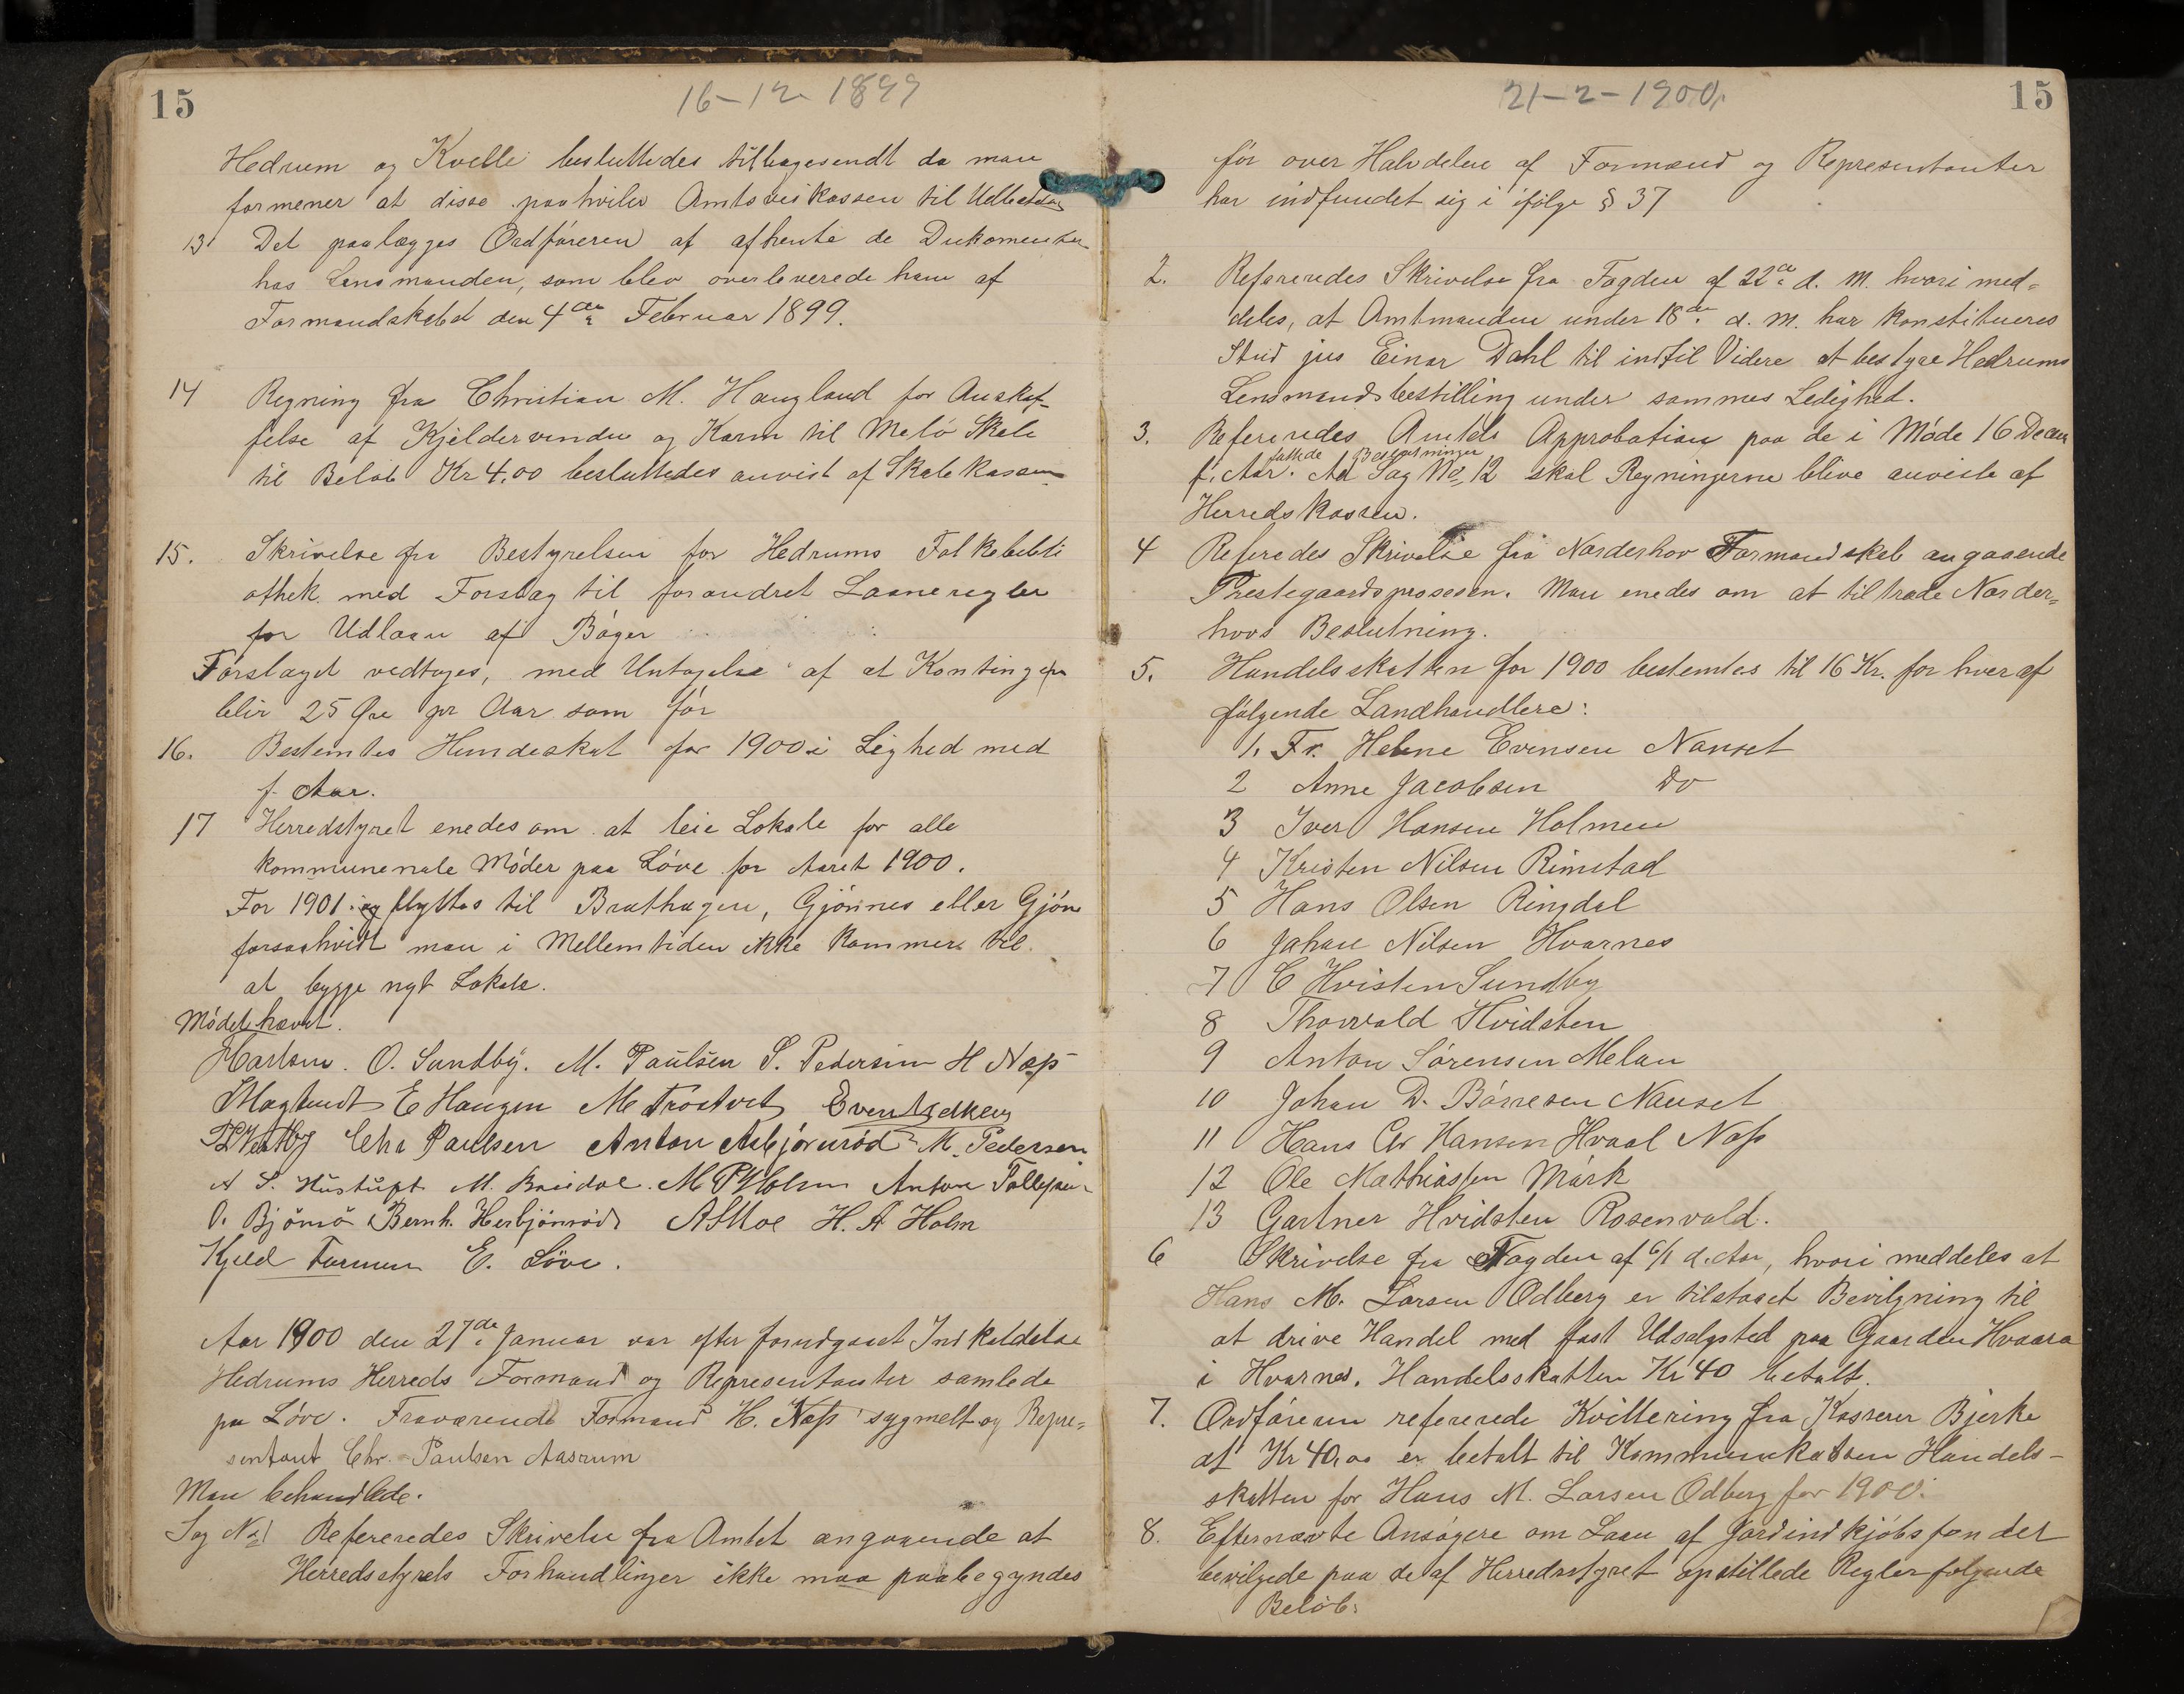 15
16-12 1899
Hedrum og Kvelle besluttedes tilbagesendt da man
formener at disse paahviler Amtsveikassen til Udbetaling
13 Det paalægges Ordföreren at afhente de Dukomenter
hos Lensmanden, som blev overleverede ham af
Formandskabet den 4de Februar 1899.
14 Regning fra Christian M. Haugland for Anskaf-
felse af Kjeldervindu og Karm til Melö Skole
til Belöb Kr 4.00 besluttedes anvist af Skolekassen
15. Skrivelse fra Bestyrelsen for Hedrums Folkebibli
othek med Forslag til forandret Laaneregler
for Udlaan af Böger
Forslaget vedtages, med Untagelse af at Kontingen
blir 25 Öre pr Aar som för
16. Bestemtes Hundeskat for 1900 i Lighed med
f. Aar.
17 Herredstyret enedes om at leie Lokale for alle
kommunenale Möder paa Löve for Aaret 1900.
For 1901 og flyttes til Brathagen, Gjönnes eller Gjöne
forsaahvidt man i Mellemtiden ikke kommer til
at bygge nyt Lokale.
Mödet hævet.
O. Sundby. M. Paulsen S. Pedersen H Næss
E Haugen M Trostvet
Chr Paulsen Anton Asbjörnröd M. Pedersen
A S. M. M P Holm Anton Tollefsen
O. Bjömö Bernh. Herbjönröd A S Moe H. A Holm
Kjeld E. Löve.
Aar 1900 den 27de Januar var efter forudgaaet Indkaldelse
Hedrums Herreds Formænd og Representanter samlede
paa Löve. Fraværende Formand H. Næss sygmeldt og Repre=
sentant Chr. Paulsen Aasrum
Man behandlede.
Sag No 1 Refereredes Skrivelse fra Amtet angaaende at
Herredsstyrets Forhandlinger ikke maa paabegyndes
21-2-1900.
15
för over Halvdelen af Formænd og Representanter
har indfundet sig i ifölge § 37
2. Refereredes Skrivelse fra Fogden af 22de d. M. hvori med=
deles, at Amtmanden under 18de d. M. har konstitueres
Stud jus Einar Dahl til indtil Videre at bestyre Hedrums
Lensmandsbestilling under sammes Ledighed.
3. Refereredes Amtets Approbation paa de i Möde 16 Decem
fattede Beslutninger
f. Aar. Ad Sag No 12 skal Regningerne blive anviste af
Herredskassen.
4 Referedes Skrivelse fra Norderhov Formandskab angaaende
Prestegaardsprosesen. Man enedes om at tiltrade Norder=
hovs Beslutning.
5. Handelsskatten for 1900 bestemtes til 16 Kr. for hver af
fölgende Landhandlere:
1. Fr. Helene Evensen Nanset
2 Anne Jacobsen Do
3 Iver Hansen Holmen
4 Kristen Nilsen Rimstad
5 Hans Olsen Ringdal
6 Johan Nilsen Hvarnes
7 C Hvisten Sundby
8 Thorvald Hvidsten
9 Anton Sörensen Melau
10 Johan D. Börresen Nanset
11 Hans Chr Hansen Hvaal Næss
12 Ole Matthiassen Mörk
13 Gartner Hvidsten Rosenvold.
6 Skrivelse fra Fogden af 6/1 d. Aar, hvori meddeles at
Hans M. Larsen Odberg er tilstaaet Bevilgning til
at drive Handel med fast Udsalgsted paa Gaarden Hvaara
i Hvarnes. Handelsskatten Kr 40 betalt.
7. Ordföreren refererede Kvittering fra Kasserer Bjerke
at Kr 40.00 er betalt til Kommunekassen Handels-
skatten for Hans M. Larsen Odberg for 1900.
8. Efternævte Ansögere om Laan af Jordindkjöbsfondet
bevilgede paa de af Herredsstyret opstillede Regler fölgende
Belöb: